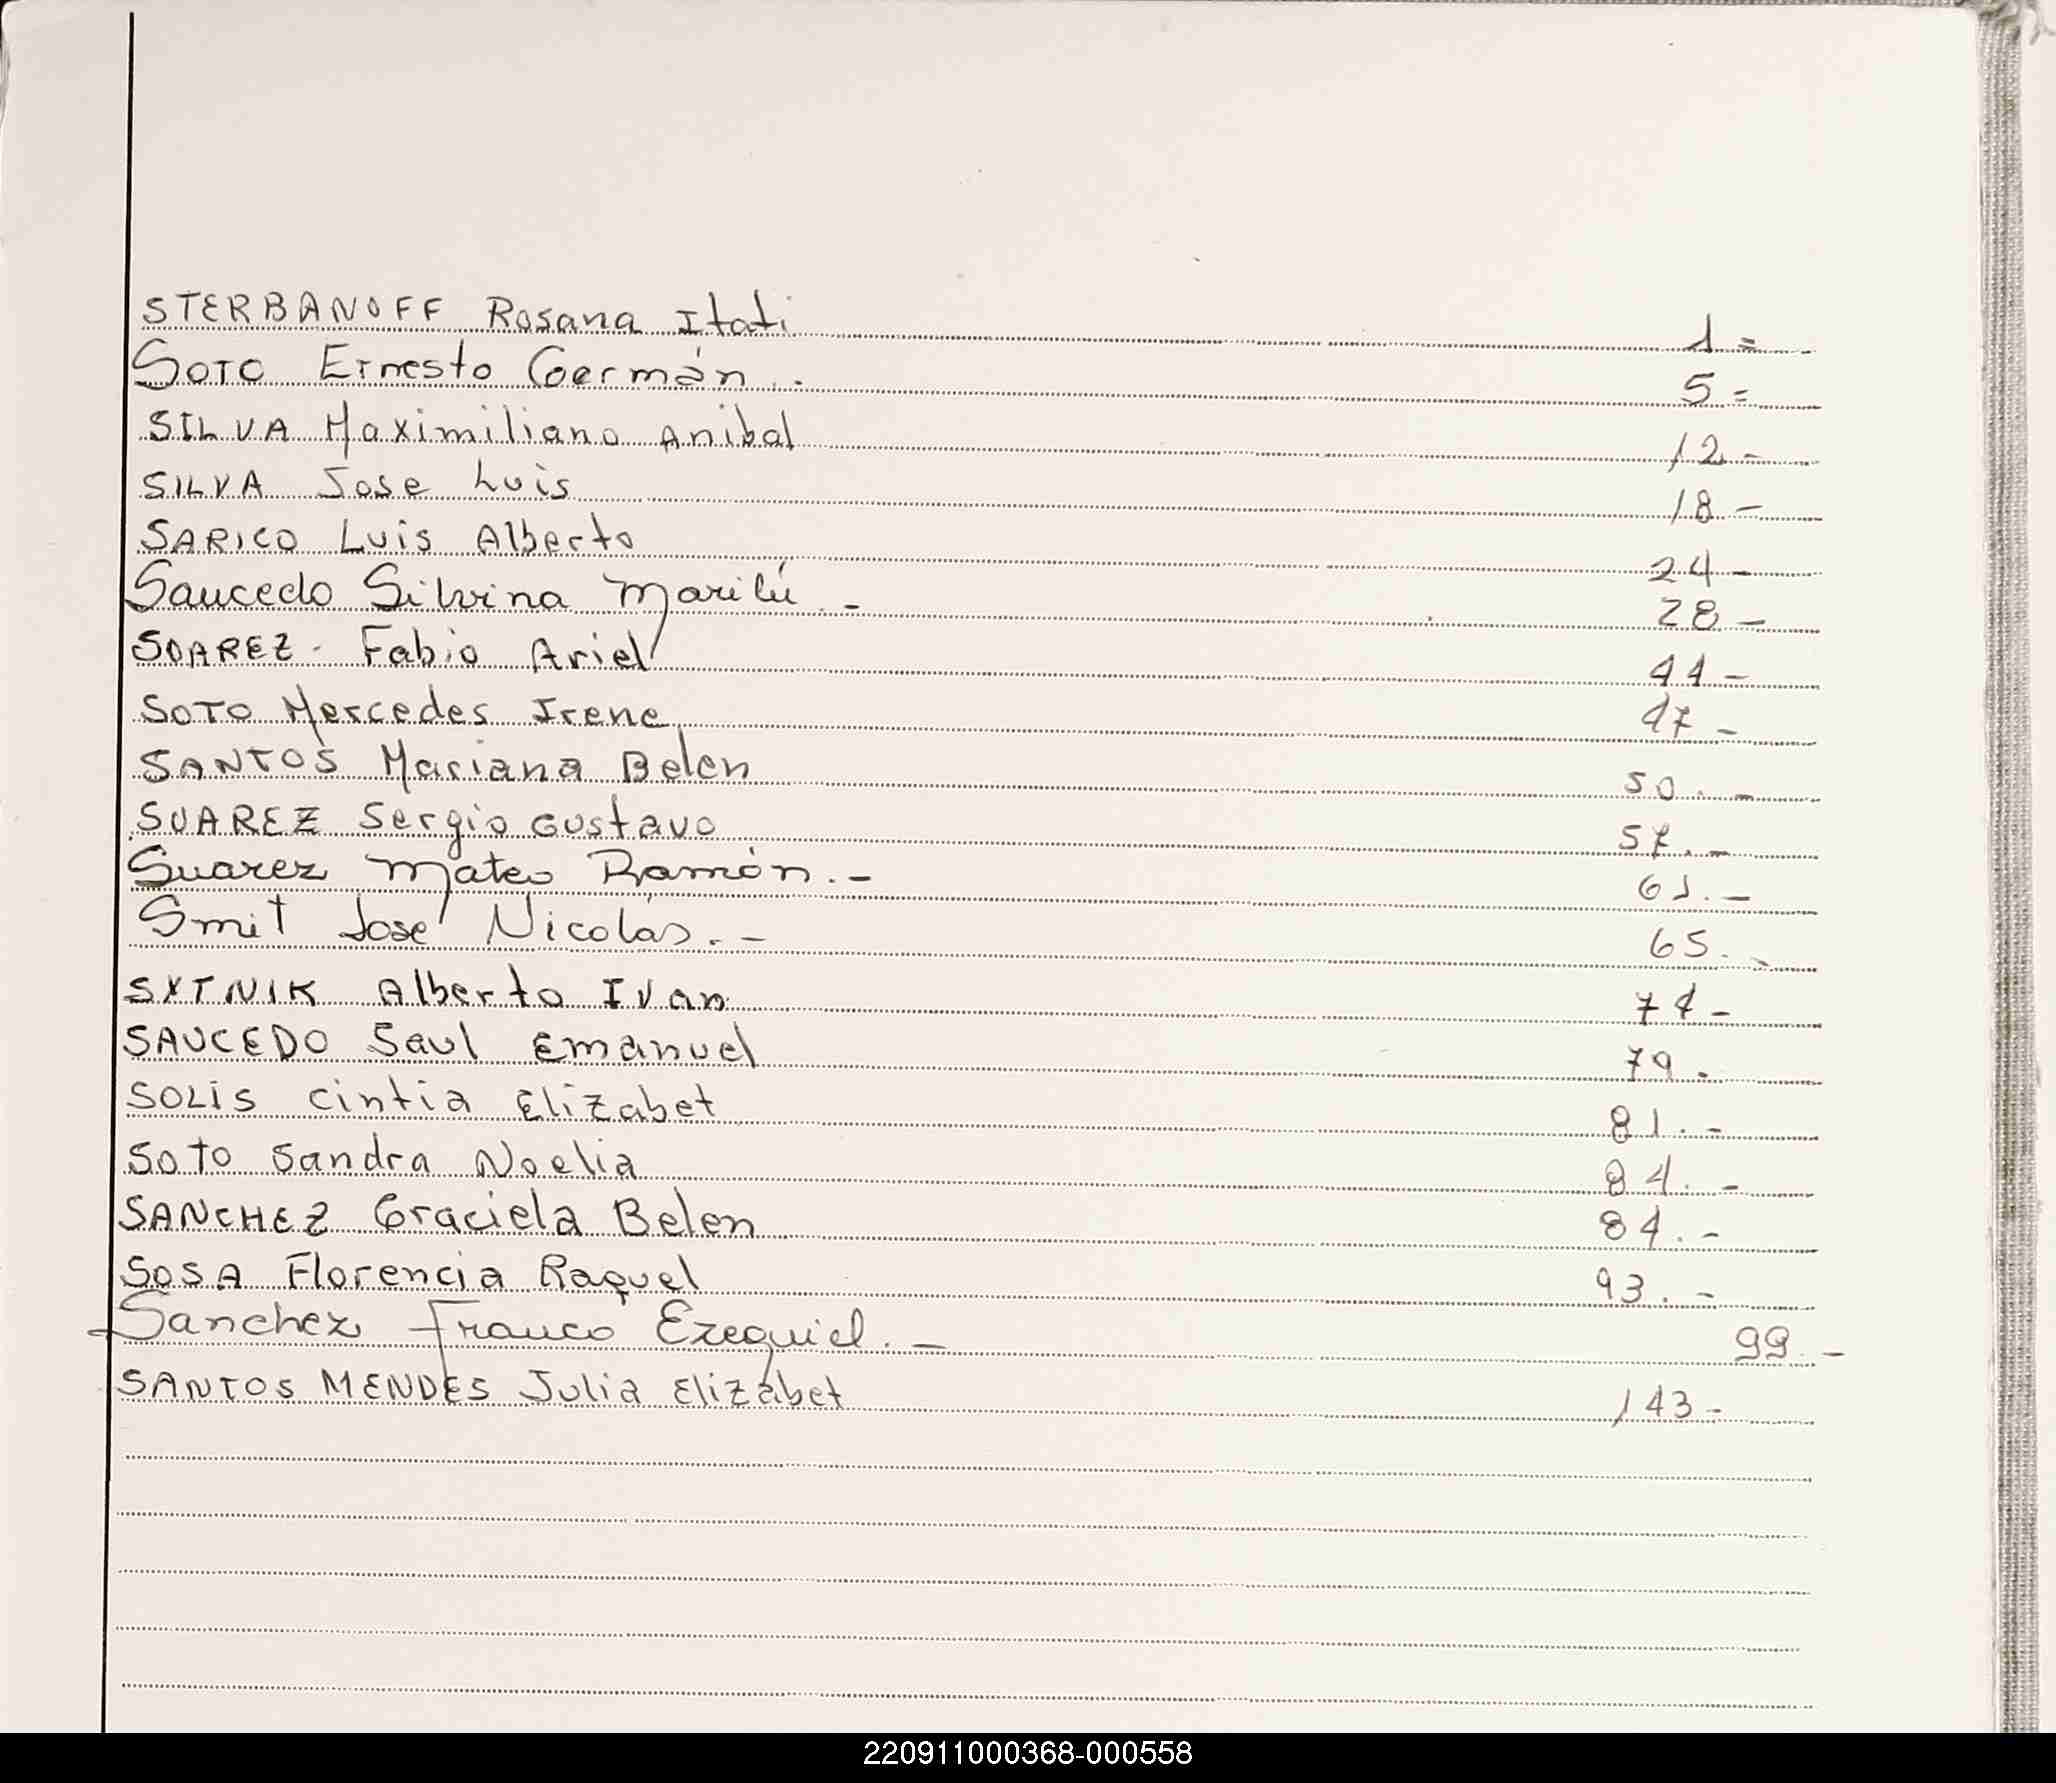 STERBANOFF Rosana Itati 1=
SOTO Ernesto Germán.- 5=
SILVA Maximiliano Anibal 12-
SILVA Jose Luis 18-
SARICO Luis Alberto 24-
Saucedo Silvina Marilú - 28-
SOAREZ- Fabio Ariel 44-
SOTO Mercedes Irene 47-
SANTOS Mariana Belen 50.-
SUAREZ Sergio Gustavo 57.-
Suarez Mateo Ramón.- 61.-
Smit José Nicolás.- 65.-
SYTNIK Alberto Ivan 74-
SAUCEDO Saul Emanuel 79.
SOLIS Cintia Elizabet 81.-
SOTO Sandra Noelia 84.-
SANCHEZ Graciela Belen 84.-
SOSA Florencia Raquel 93.-
Sanchez Franco Ezequiel.- 99.-
SANTOS MENDES Julia Elizabet 143-
220911000368-000558